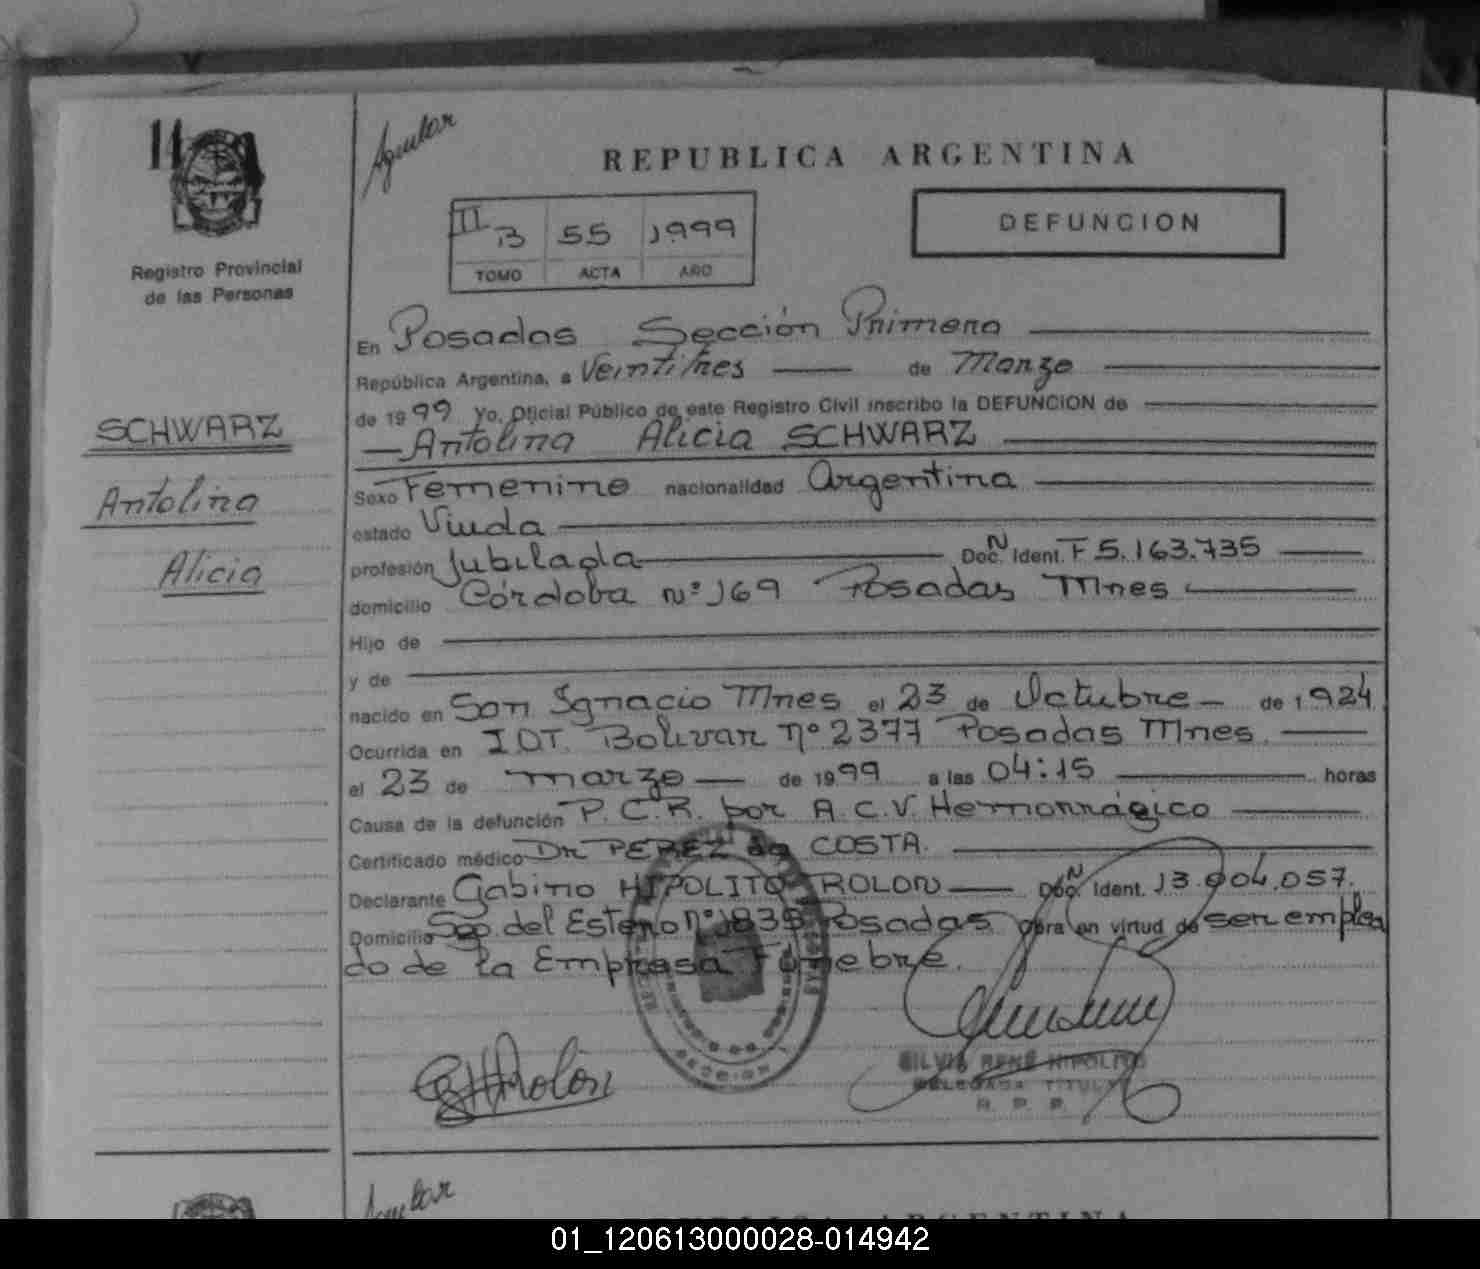 14
Aguilar
REPUBLICA ARGENTINA
II B 55 1999
TOMO ACTA AÑO
DEFUNCION
Registro Provincial
de las Personas
SCHWARZ
Antolina
Alicia
En Posadas Sección Primera
República Argentina, a Veintitres de Marzo
de 1999 Yo, Oficial Público de este Registro Civil inscribo la DEFUNCION de
Antolina Alicia SCHWARZ
Sexo Femenino nacionalidad Argentina
estado Viuda
profesión Jubilada Doc. N Ident. F 5.163.735
domicilio Córdoba nº 169 Posadas Mnes
Hijo de
y de
nacido en San Ignacio Mnes el 23 de Octubre de 1.924
Ocurrida en IOT. Bolivar nº 2377 Posadas Mnes.
el 23 de marzo de 1999 a las 04:15 horas
Causa de la defunción P.C.R. por A.C.V. Hemorrágico
Certificado médico Dr PEREZ da COSTA.
Declarante Gabino HIPOLITO ROLON Doc. N Ident. 13.004.057.
Domicilio Sgo. del Estero nº 1835 Posadas obra en virtud de ser emplea
do de la Empresa Fúnebre.
GHRolón
SILVIA RENÉ HIPOLITO
DELEGADA TITULAR
R. P. P.
Aguilar
01_120613000028-014942